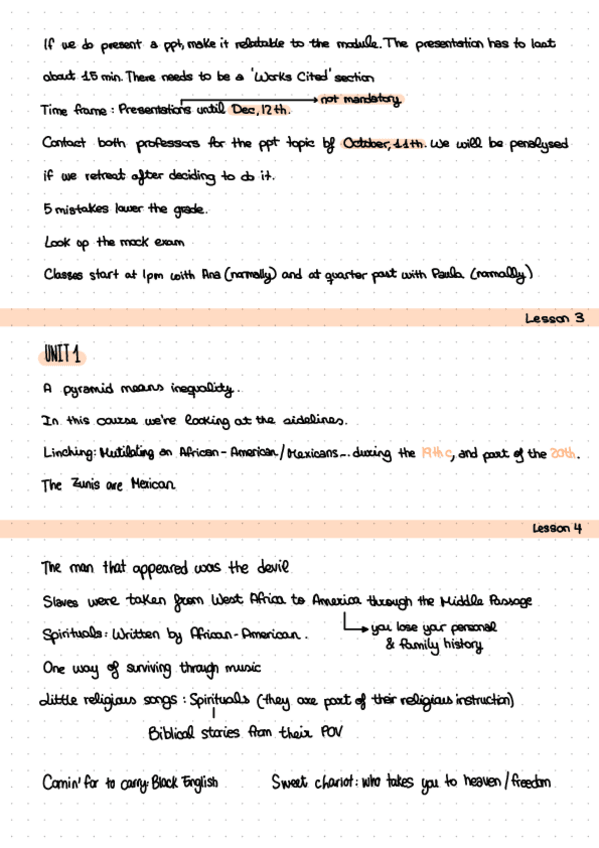 If we do present a ppt, make it relatable to the module. The presentation has to last
about 15 min. There needs to be a 'Works Cited' section
not mandatory
Time frame: Presentations until Dec, 12th.
Contact both professors for the ppt topic by October, 11th. We will be penalysed
if we retreat after deciding to do it.
5 mistakes lower the grade.
Look up the mock exam
Classes start at 1pm with Ana (normally) and at quarter past with Paula (normally)
Lesson 3
UNIT 1
A pyramid means inequality.
In this course we're looking at the sidelines.
Linching: Mutilating an African-American/Mexicans... during the 19th c, and part of the 20th.
The Zunis are Mexican
Lesson 4
The man that appeared was the devil
Slaves were taken from West Africa to America through the Middle Passage
you lose your personal
& family history
Spirituals: Written by African-American.
One way of surviving through music
Little religious songs: Spirituals (they are part of their religious instruction)
Biblical stories from their POV
Comin' for to carry: Black English
Sweet chariot: who takes you to heaven/freedom